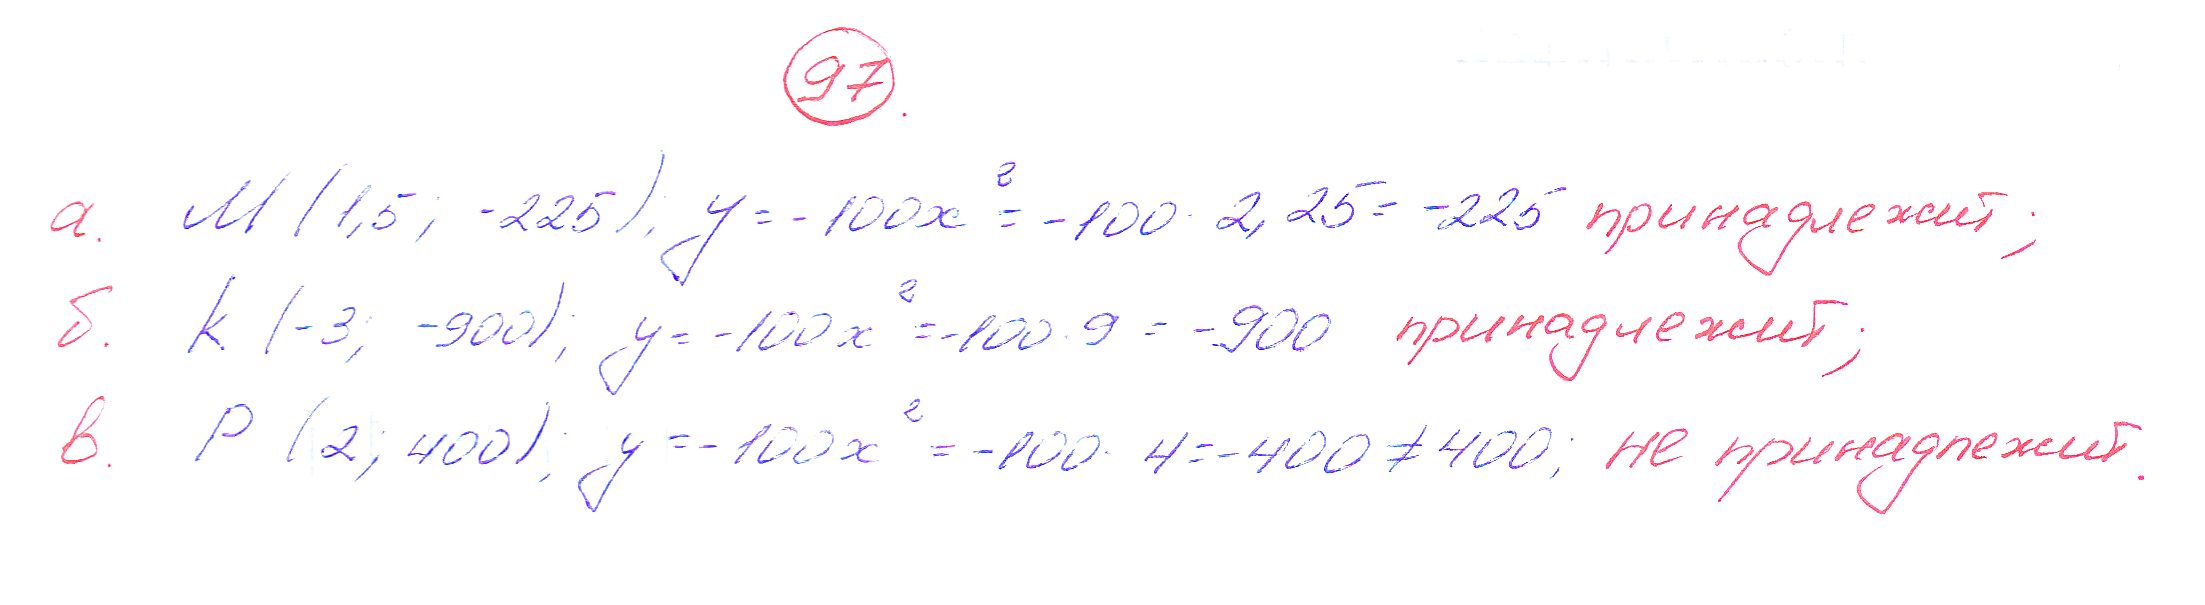 97.
а. М (1,5; -225); y = -100x² = -100 · 2,25 = -225 принадлежит;
б. K (-3; -900); y = -100x² = -100 · 9 = -900 принадлежит;
в. P (2; 400); y = -100x² = -100 · 4 = -400 ≠ 400; не принадлежит.